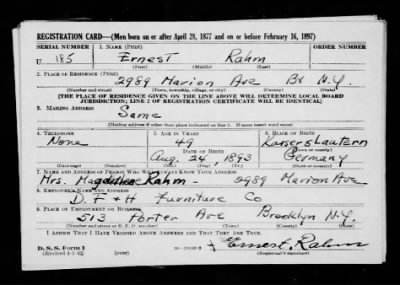 REGISTRATION CARD—(Men born on or after April 28, 1877 and on or before February 16, 1897)
SERIAL NUMBER 1. NAME (Print) ORDER NUMBER
U. 185 Ernest Rahm
(First) (Middle) (Last)
2. PLACE OF RESIDENCE (Print)
2989 Marion Ave Bx N.Y.
(Number and street) (Town, township, village, or city) (County) (State)
[THE PLACE OF RESIDENCE GIVEN ON THE LINE ABOVE WILL DETERMINE LOCAL BOARD
JURISDICTION; LINE 2 OF REGISTRATION CERTIFICATE WILL BE IDENTICAL]
3. MAILING ADDRESS
Same
[Mailing address if other than place indicated on line 2. If same insert word same]
4. TELEPHONE 5. AGE IN YEARS 6. PLACE OF BIRTH
None 49 Kaiserslautern
DATE OF BIRTH
Aug. 24, 1893 Germany
(Exchange) (Number) (Mo.) (Day) (Yr.) (State or country)
7. NAME AND ADDRESS OF PERSON WHO WILL ALWAYS KNOW YOUR ADDRESS
Mrs. Rahm - 2989 Marion Ave
8. EMPLOYER'S NAME AND ADDRESS
D. F + H Furniture Co
9. PLACE OF EMPLOYMENT OR BUSINESS
513 Porter Ave Brooklyn N.Y.
(Number and street or R. F. D. number) (Town) (County) (State)
I AFFIRM THAT I HAVE VERIFIED ABOVE ANSWERS AND THAT THEY ARE TRUE.
D. S. S. Form 1
(Revised 4-1-42) (over) Ernest Rahm
(Registrant's signature)